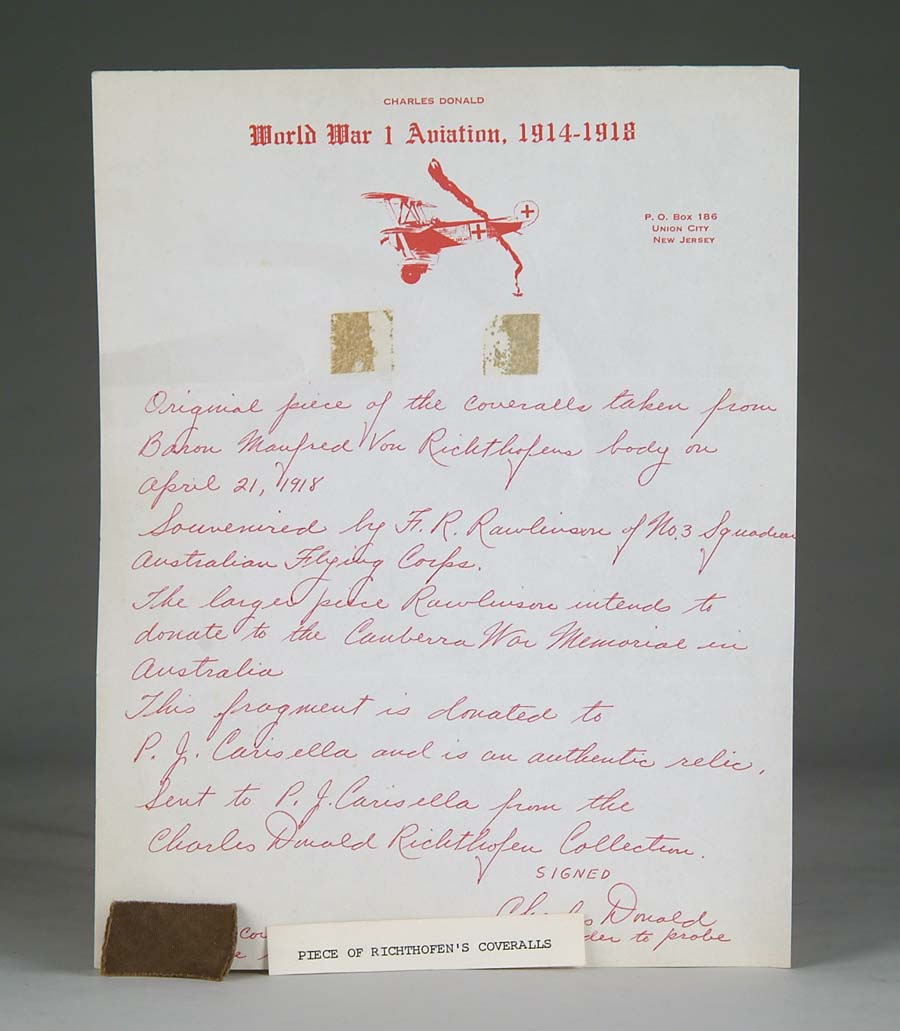 CHARLES DONALD
World War 1 Aviation, 1914-1918
P. O. Box 186
Union City
New Jersey
Original piece of the coveralls taken from
Baron Manfred Von Richthofens body on
April 21, 1918
Souvenired by F. R. Rawlinson of No. 3 Squadron
Australian Flying Corps.
The larger piece Rawlinson intends to
donate to the Canberra War Memorial in
Australia
This fragment is donated to
P. J. Carisella and is an authentic relic.
Sent to P. J. Carisella from the
Charles Donald Richthofen Collection.
SIGNED
Charles Donald
to probe
PIECE OF RICHTHOFEN'S COVERALLS